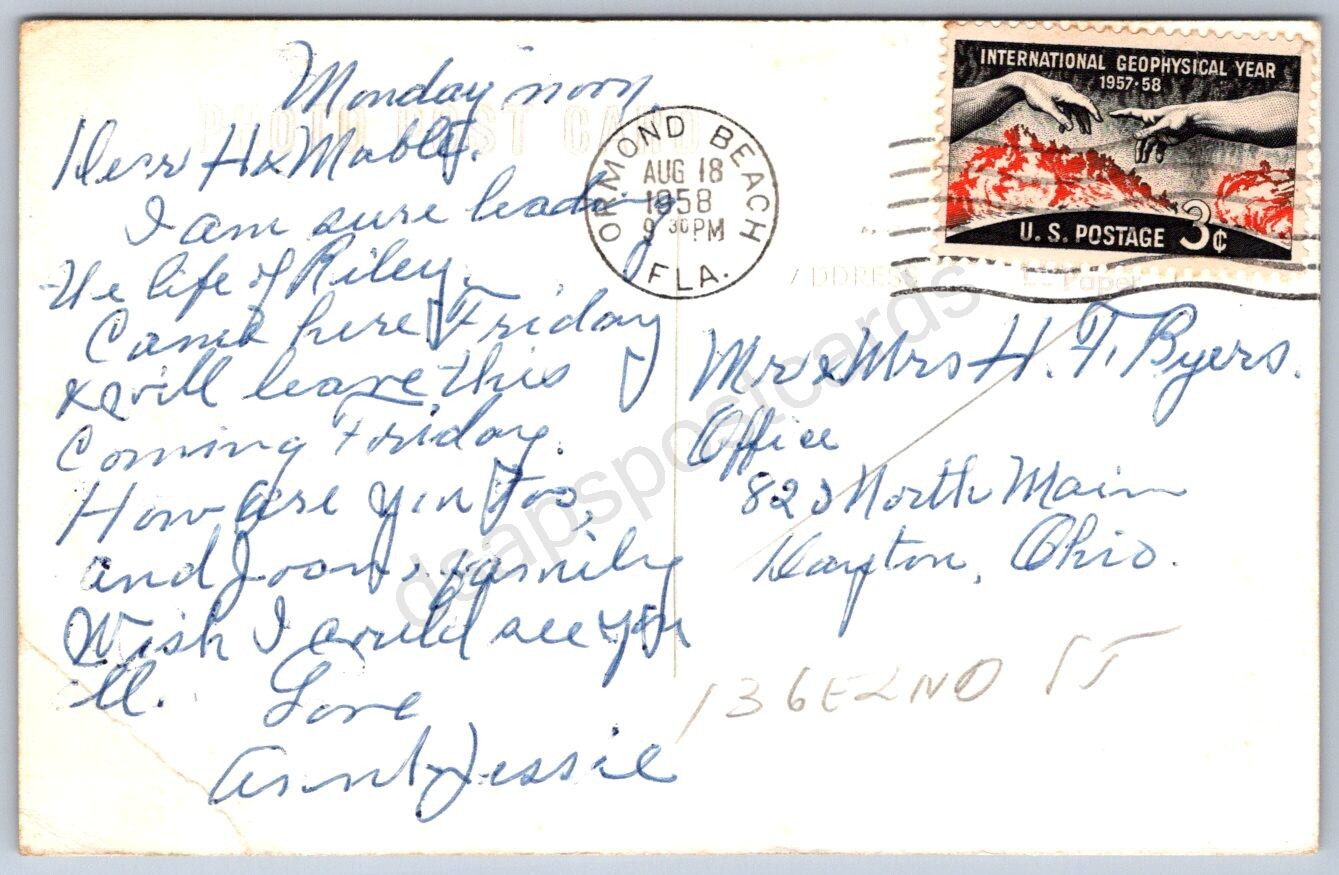 Monday noon
Dear H & Mable.
I am sure leading
the life of Riley.
Came here Friday
& will leave this
Coming Friday.
How are you too,
and Joan & family
Wish I could see you
all.
Love
Aunt Jessie
PHOTO POST CARD
ORMOND BEACH
AUG 18
1958
9 30 PM
FLA.
INTERNATIONAL GEOPHYSICAL YEAR
1957-58
U. S. POSTAGE 3¢
ADDRESS
Paper
Mr & Mrs H. F. Byers.
Office
North Main
Dayton, Ohio.
136 E 2ND ST
dsapspostcards